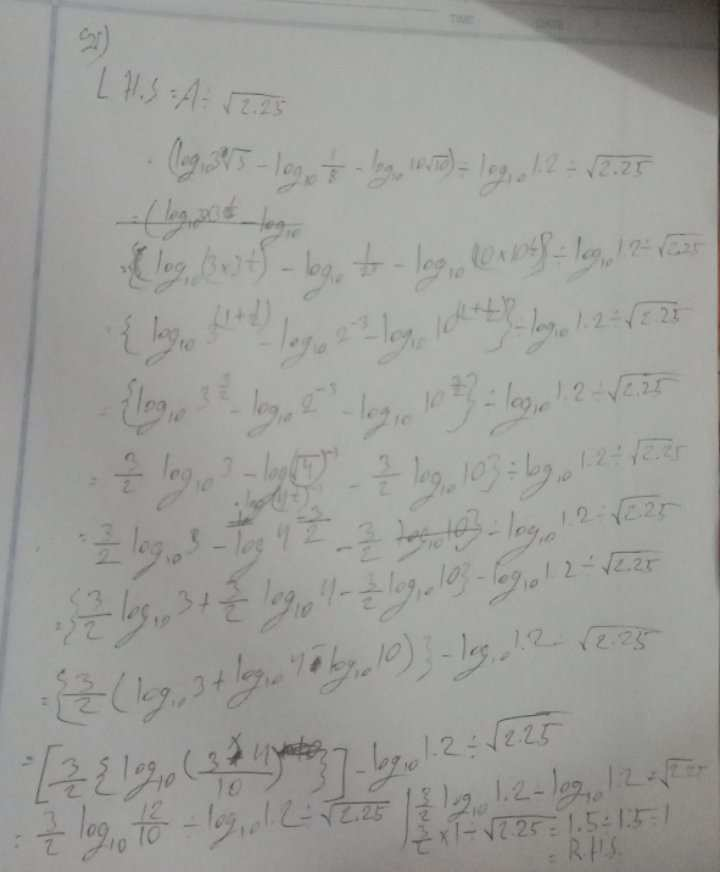 TIME DATE
L.H.S = A ÷ √2.25
(log₁₀3√3 - log₁₀ 1/8 - log₁₀ 10√10) ÷ log₁₀ 1.2 ÷ √2.25
{log₁₀ (3×3^½) - log₁₀ - log₁₀ (10×10^½)} ÷ log₁₀ 1.2 ÷ √2.25
{log₁₀ 3^(1+½) - log₁₀ 2⁻³ - log₁₀ 10^(1+½)} ÷ log₁₀ 1.2 ÷ √2.25
= {log₁₀ 3^(3/2) - log₁₀ 2⁻³ - log₁₀ 10^(3/2)} ÷ log₁₀ 1.2 ÷ √2.25
= 3/2 log₁₀ 3 - log(√4)⁻³ - 3/2 log₁₀ 10} ÷ log₁₀ 1.2 ÷ √2.25
= 3/2 log₁₀ 3 - log 4^(-3/2) - 3/2 log₁₀ 10} ÷ log₁₀ 1.2 ÷ √2.25
= {3/2 log₁₀ 3 + 3/2 log₁₀ 4 - 3/2 log₁₀ 10} ÷ log₁₀ 1.2 ÷ √2.25
= {3/2 (log₁₀ 3 + log₁₀ 4 - log₁₀ 10)} ÷ log₁₀ 1.2 ÷ √2.25
= [3/2 {log₁₀ (3×4/10)}] ÷ log₁₀ 1.2 ÷ √2.25
= 3/2 log₁₀ 12/10 ÷ log₁₀ 1.2 ÷ √2.25
3/2 log₁₀ 1.2 ÷ log₁₀ 1.2 ÷ √2.25
3/2 × 1 ÷ √2.25 = 1.5 ÷ 1.5 = 1
= R.H.S.